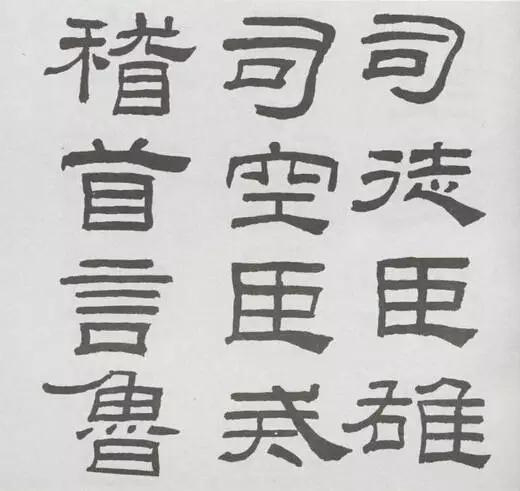 司徒臣雄
司空臣戒
稽首言魯